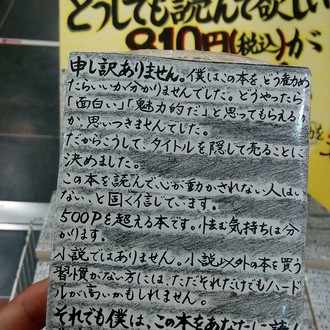 どうしても読んで欲しい
810円(税込)が
申し訳ありません。僕はこの本をどう勧め
たらいいか分かりませんでした。どうやったら
「面白い」「魅力的だ」と思ってもらえる
か、思いつきませんでした。
だからこうして、タイトルを隠して売ることに
決めました。
この本を読んで、心が動かされない人はい
ない、と固く信じています。
500Pを超える本です。怯む気持ちは分
かります。
小説ではありません。小説以外の本を買う
習慣がない方には、ただそれだけでもハード
ルが高いかもしれません。
それでも僕は、この本をあなたに読ん